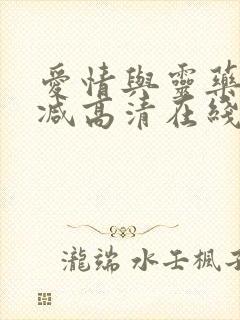 愛情與靈藥
减高清在綫
瀧端 水壬楓子